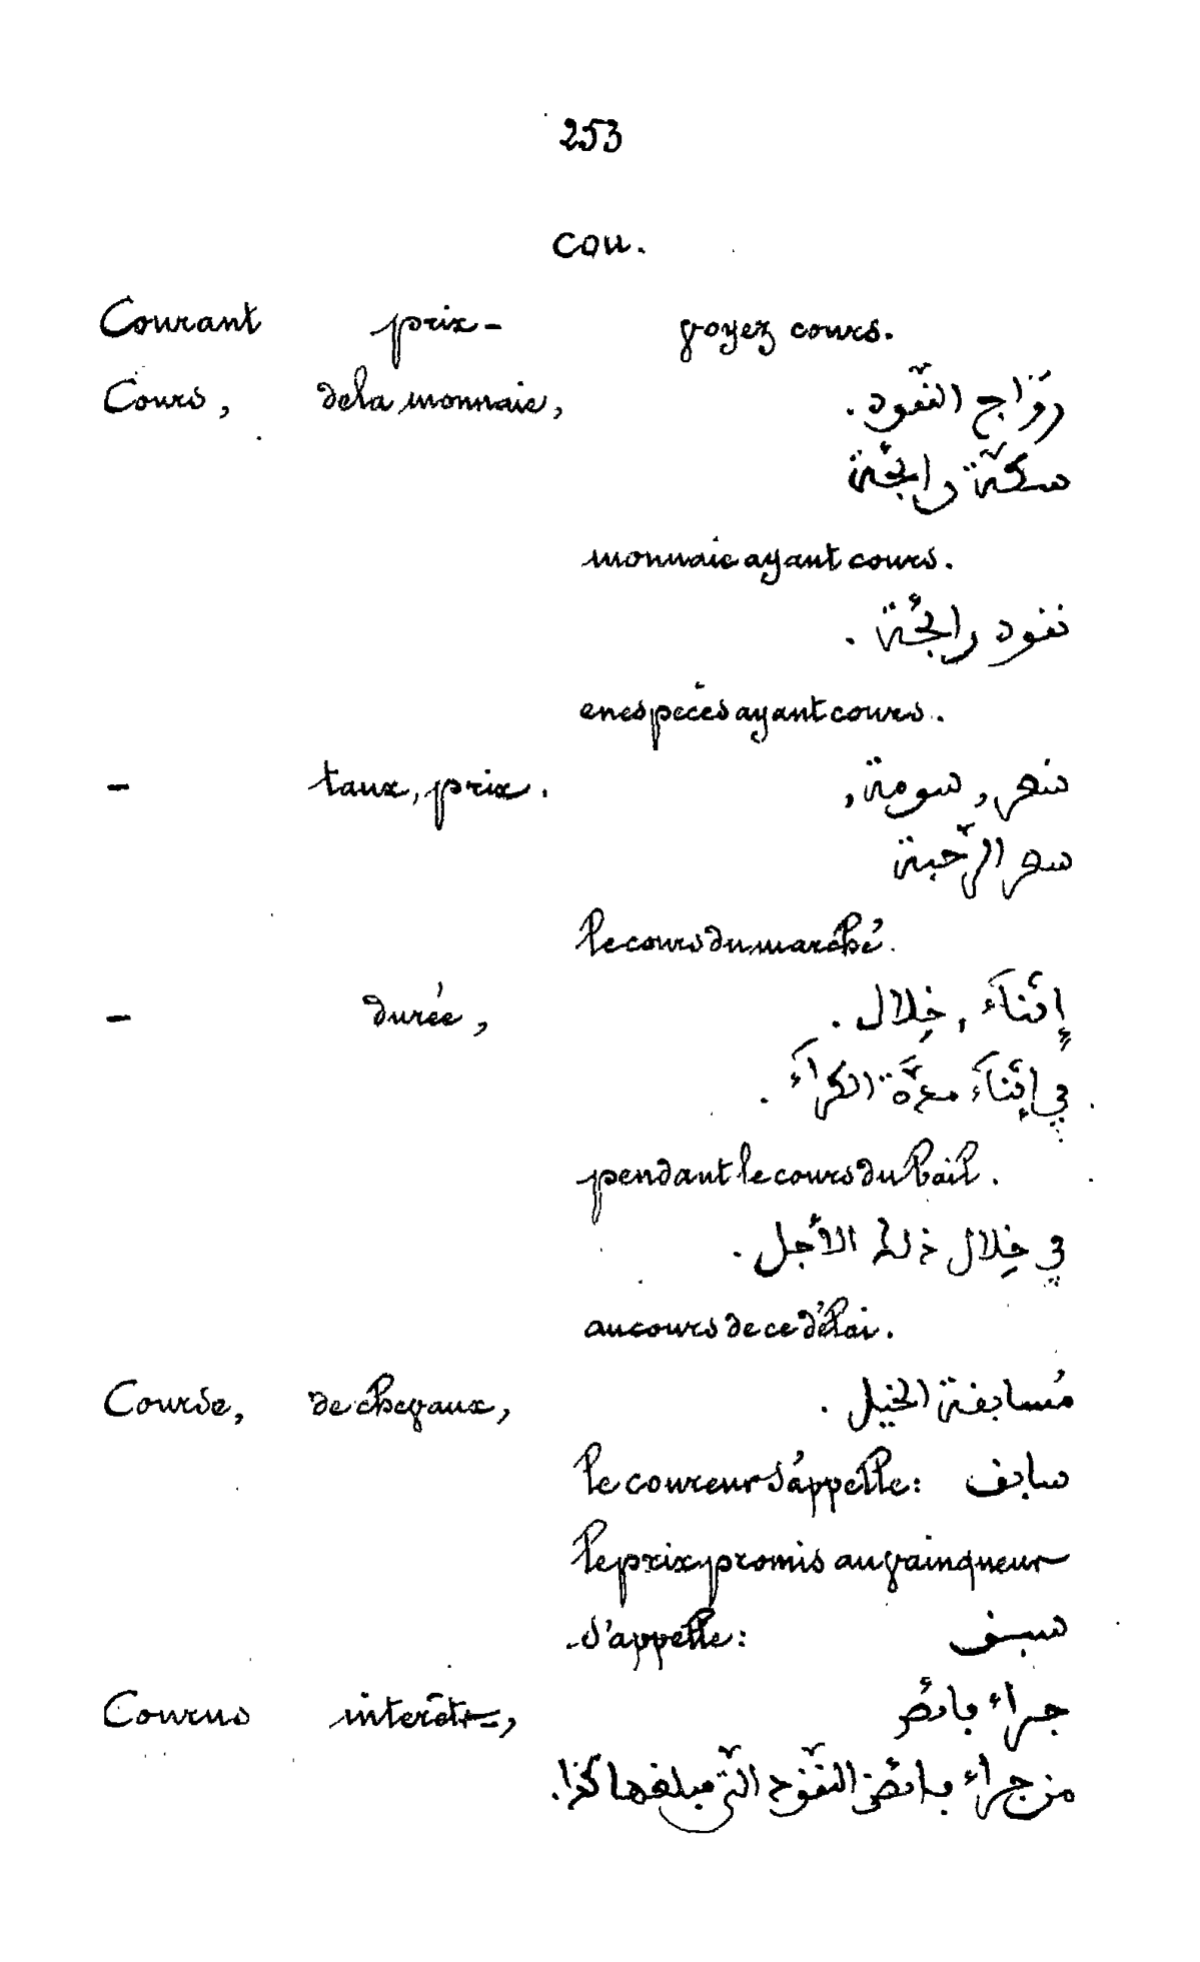 253
cou.
Courant prix - voyez cours.
Cours, de la monnaie, رَوَاج النّقود.
سكّة رائجة
monnaie ayant cours.
نقود رائجة.
en espèces ayant cours.
- taux, prix. سعر, سومة,
سعر الرّحبة
le cours du marché.
- durée, إثناءَ, خِلال.
في إثناءَ مدّة الكراءَ.
pendant le cours du bail.
في خِلال ذلك الأجل.
au cours de ce délai.
Course, de chevaux, مُسابقة الخيل.
le coureur s'appelle: سابق
le prix promis au vainqueur
s'appelle: سبق
Courus interêts-, جراء فائض
من جراء فائض النّقود الّتي مبلغها كذا.